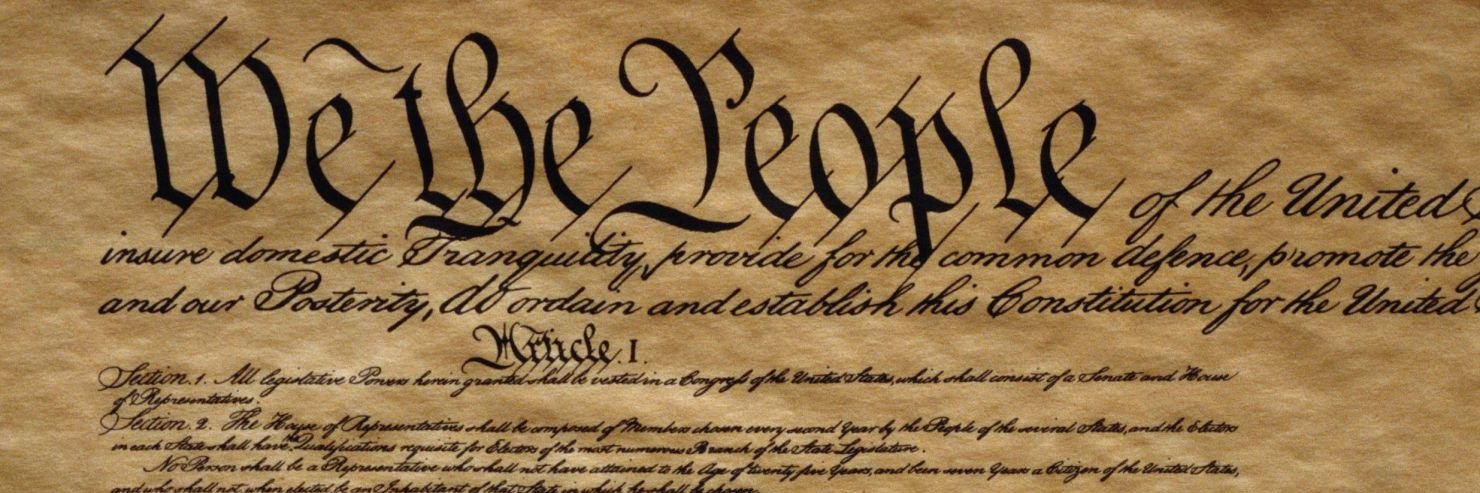 We the People of the United
insure domestic Tranquility, provide for the common defence, promote the
and our Posterity, do ordain and establish this Constitution for the United
Article. I.
Section. 1. All legislative Powers herein granted shall be vested in a Congreſs of the United States, which shall consist of a Senate and House
of Representatives.
Section. 2. The House of Representatives shall be composed of Members chosen every second Year by the People of the several States, and the Electors
in each State shall have the Qualifications requisite for Electors of the most numerous Branch of the State Legislature.
No Person shall be a Representative who shall not have attained to the Age of twenty five Years, and been seven Years a Citizen of the United States,
and who shall not, when elected, be an Inhabitant of that State in which he shall be chosen.